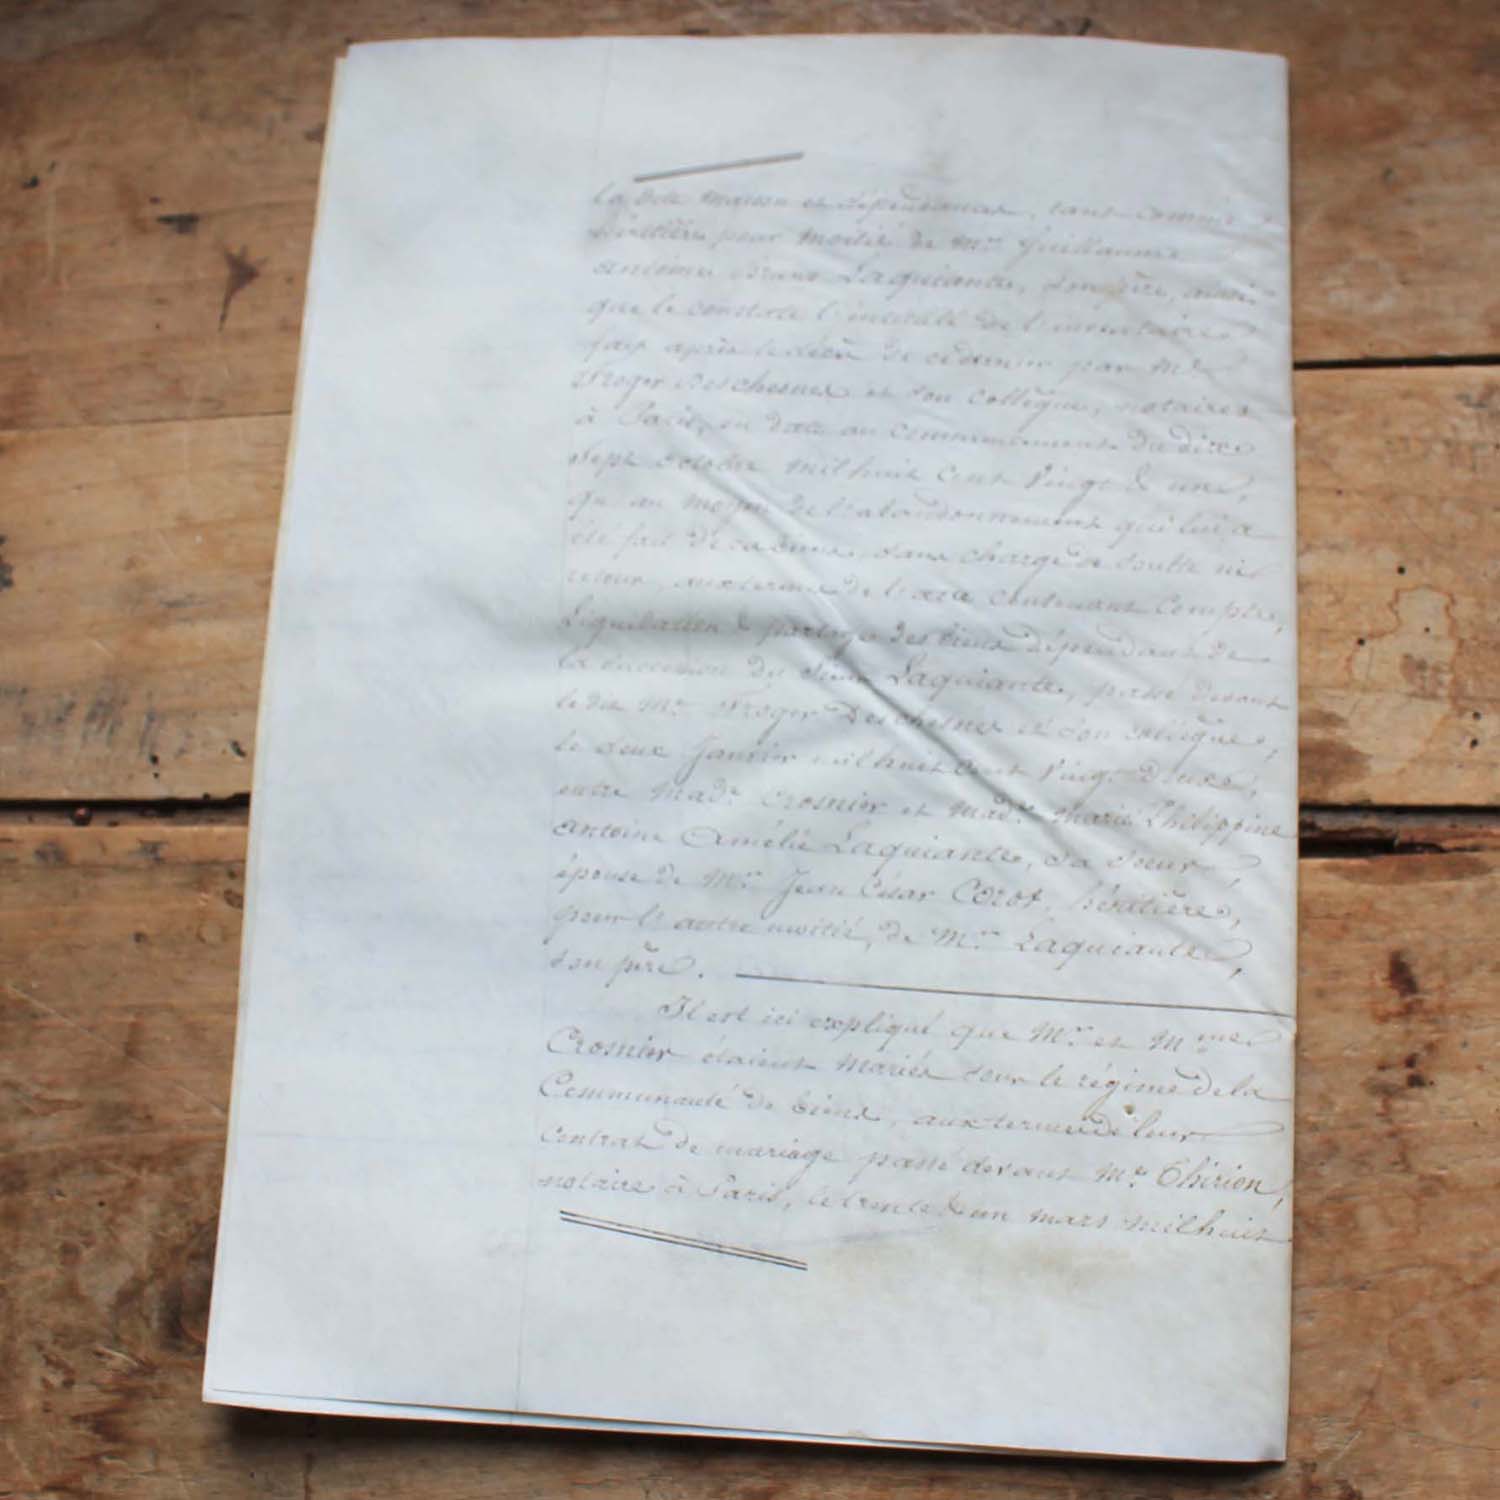 la dite maison et dépendances, tant comme
héritière pour moitié de Mr. Guillaume
antoine Bruno Laquiante, son père, ainsi
que le constate l'intitulé de l'inventaire
fait après le décès de ce dernier par Me
Froger Deschesnes et son collègue, notaires
à Paris, en date au commencement du dix
sept octobre mil huit cent vingt & un,
qu'au moyen de l'abandonnement qui lui a
été fait de ces biens, sans charge de soulte ni
retour, aux termes de l'acte contenant Compte,
Liquidation & partage des biens dépendant de
la succession du sieur Laquiante, passé devant
le dit Me Froger Deschesnes et son collègue,
le deux Janvier mil huit cent vingt deux,
entre Made. Crosnier et Made. Marie Philippine
antoine Amélie Laquiante, sa sœur,
épouse de Mr. Jean César Corot, héritière,
pour l'autre moitié, de Mr. Laquiante,
son père.
Il est ici expliqué que Mr. et Mme
Crosnier étaient mariés sous le régime de la
Communauté de biens, aux termes de leur
contrat de mariage passé devant Me Thirion,
notaire à Paris, le trente & un mars mil huit